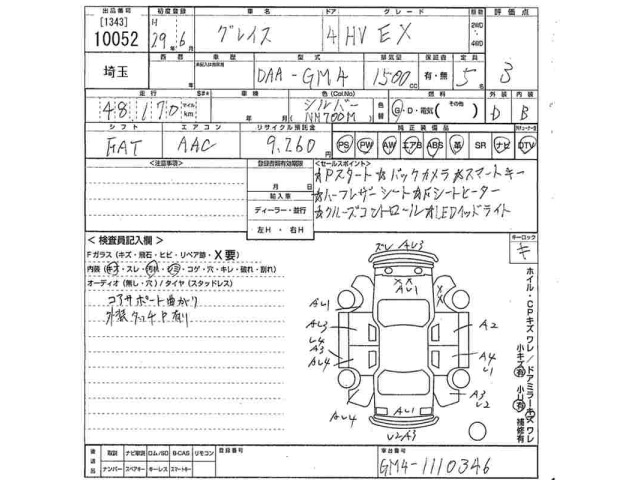 出品番号 初度登録 車名 ドア グレード 駆動 評価点
[1343]
10052
H 29年 6月 グレイス 4 HV EX 2WD 4WD 3
埼玉
西暦 車歴 型式 排気量 保証書 定員
DAA-GM4 1500cc 有・無 5
走行 車検 色(Col.No) 色替 燃料 外装 内装
48,170 マイル km 年 月 シルバー NH700M G・D・電気 (その他) D B
シフト エアコン リサイクル預託金 純正装備品
FAT AAC 9,260円 PS PW AW エアB ABS 革 SR ナビ DTV
<注意事項> 登録書類有効期限 <セールスポイント>
月 日
輸入車
ディーラー・並行
左H・右H
☆Pスタート ☆バックカメラ ☆スマートキー
☆ハーフレザーシート ☆Fシートヒーター
☆クルーズコントロール ☆LEDヘッドライト
<検査員記入欄>
Fガラス(キズ・飛石・ヒビ・リペア跡・X要)
内装(キズ・スレ・汚れ・シミ・コゲ・穴・キレ・破れ・割れ)
オーディオ(無し・穴)/タイヤ(スタッドレス)
コアサポート曲がり
外装タッチP有り
キーロック
キ
ホイル・CPキズ ワレ/ドアミラーキズ ワレ
小キズ有 小U有 補修有
ズレ AL3
X X
AL1
AL1
AL3
L4
A3
AL4
AL4
A2
A4
L1
A3
L2
AL1
U2A3
後送品 取説 ナビ取説 ロム/SD B-CAS リモコン
ナンバー スペアキー キーレス スマートキー
登録番号
車台番号
GM4-1110346